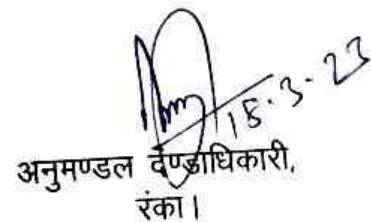 15.3.23
अनुमण्डल दण्डाधिकारी,
रंका।